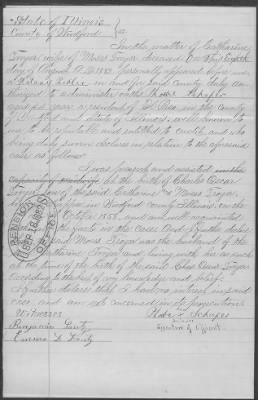 State of Illinois
County of Woodford } SS
In the matter of Catharine
Troyer widow of Moses Troyer deceased On this Eighth
day of August A.D. 1883. personally appeared before me
a Notary Public in and for said County duly au-
thorized to administer oaths Phebe Schapes
aged year a resident of El Paso in the County
of Woodford and State of Illinois, well known to
me to be reputable and entitled to credit and who
being duly sworn declares in relation to the aforesaid
case as follows
I was present and assisted
at the birth of Charles Oscar
Troyer son of the said Catharine & Moses Troyer
Woodford County Illinois, on the
October 1858. and am well acquainted
with the facts in the case And further declare
said Moses Troyer was the husband of the
Catharine Troyer and living with her as such
at the time of the birth of the said Chas Oscar Troyer
according to the best of my knowledge and belief
I further declare that I have no interest in said
case and am not concerned in its prosecution
Witnesses Phebe Schapes
Benjamin Lantz Signature of Affiant
Emma L Lantz
PENSION OFFICE